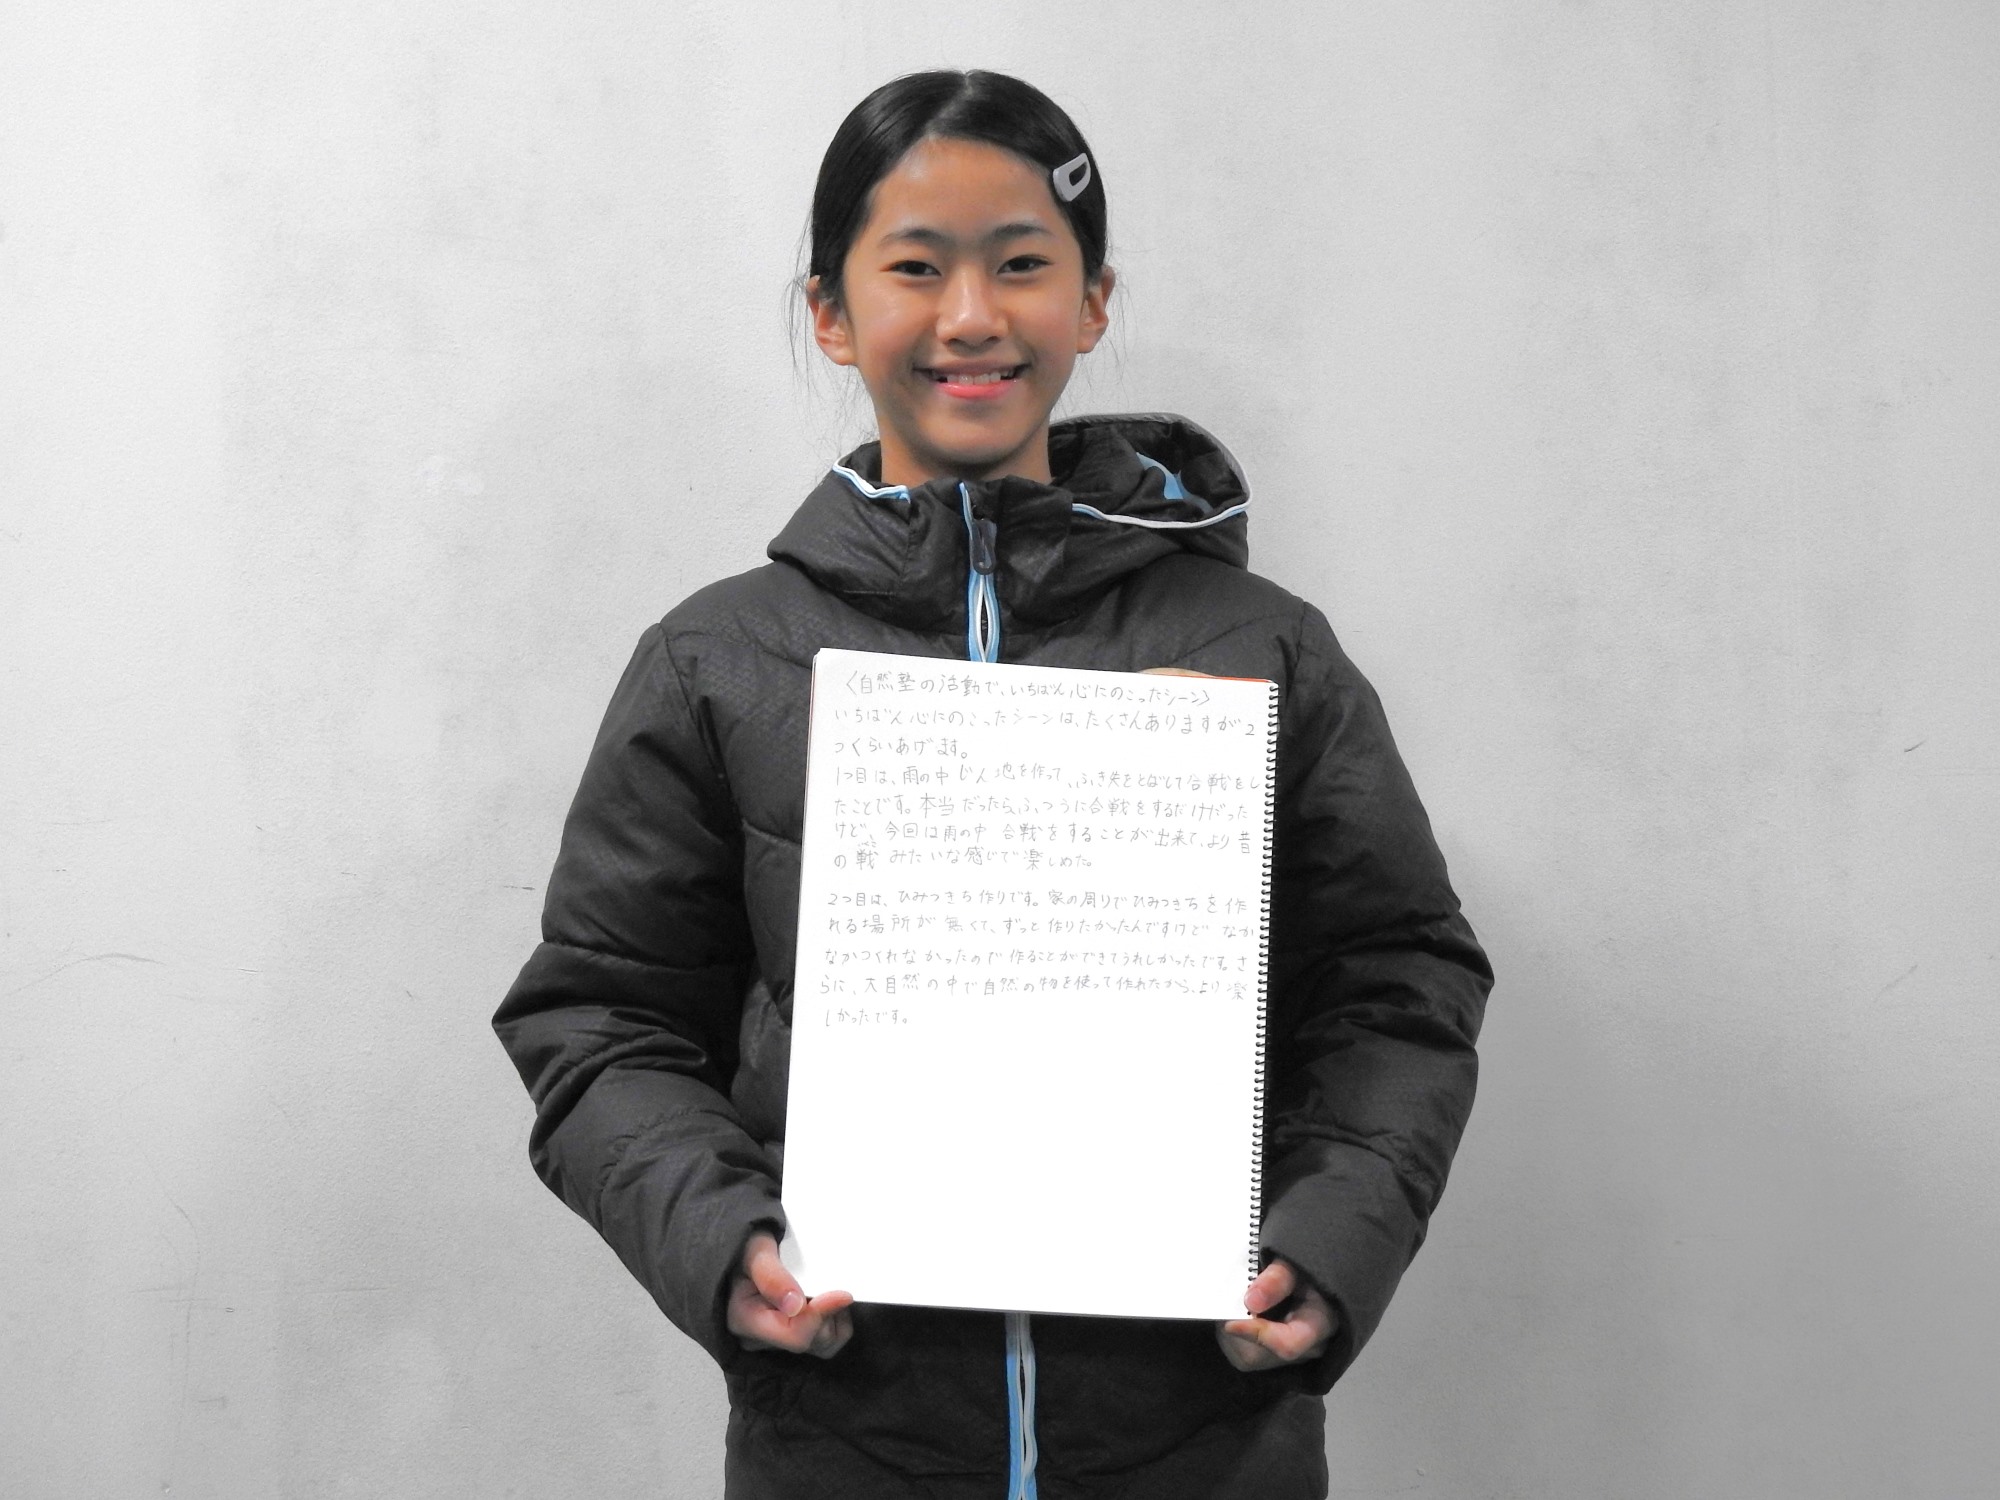 〈自然塾の活動で、いちばん心にのこったシーン〉
いちばん心にのこったシーンは、たくさんありますが2
つくらいあげます。
1つ目は、雨の中じん地を作って、ふき矢をとばして合戦をし
たことです。本当だったら、ふつうに合戦をするだけだった
けど、今回は雨の中合戦をすることが出来て、より昔
の戦みたいな感じで楽しめた。
2つ目は、ひみつきち作りです。家の周りでひみつきちを作
れる場所が無くて、ずっと作りたかったんですけどなか
なかつくれなかったので作ることができてうれしかったです。さ
らに、大自然の中で自然の物を使って作れたから、より楽
しかったです。